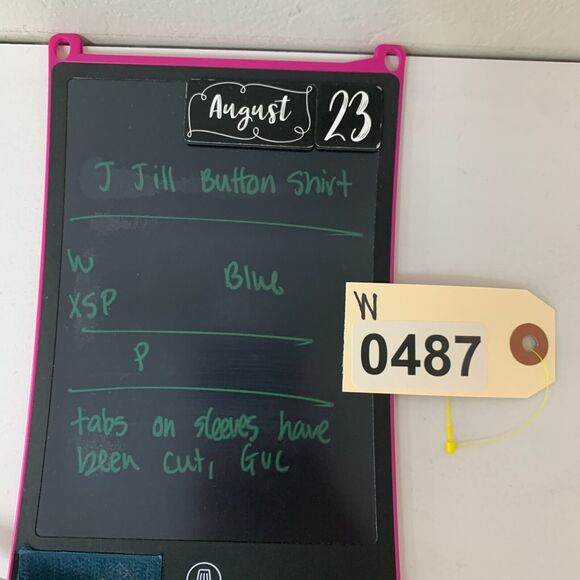 August 23
J Jill Button Shirt
W Blue
XSP
P
tabs on sleeves have
been cut, GUC
W
0487